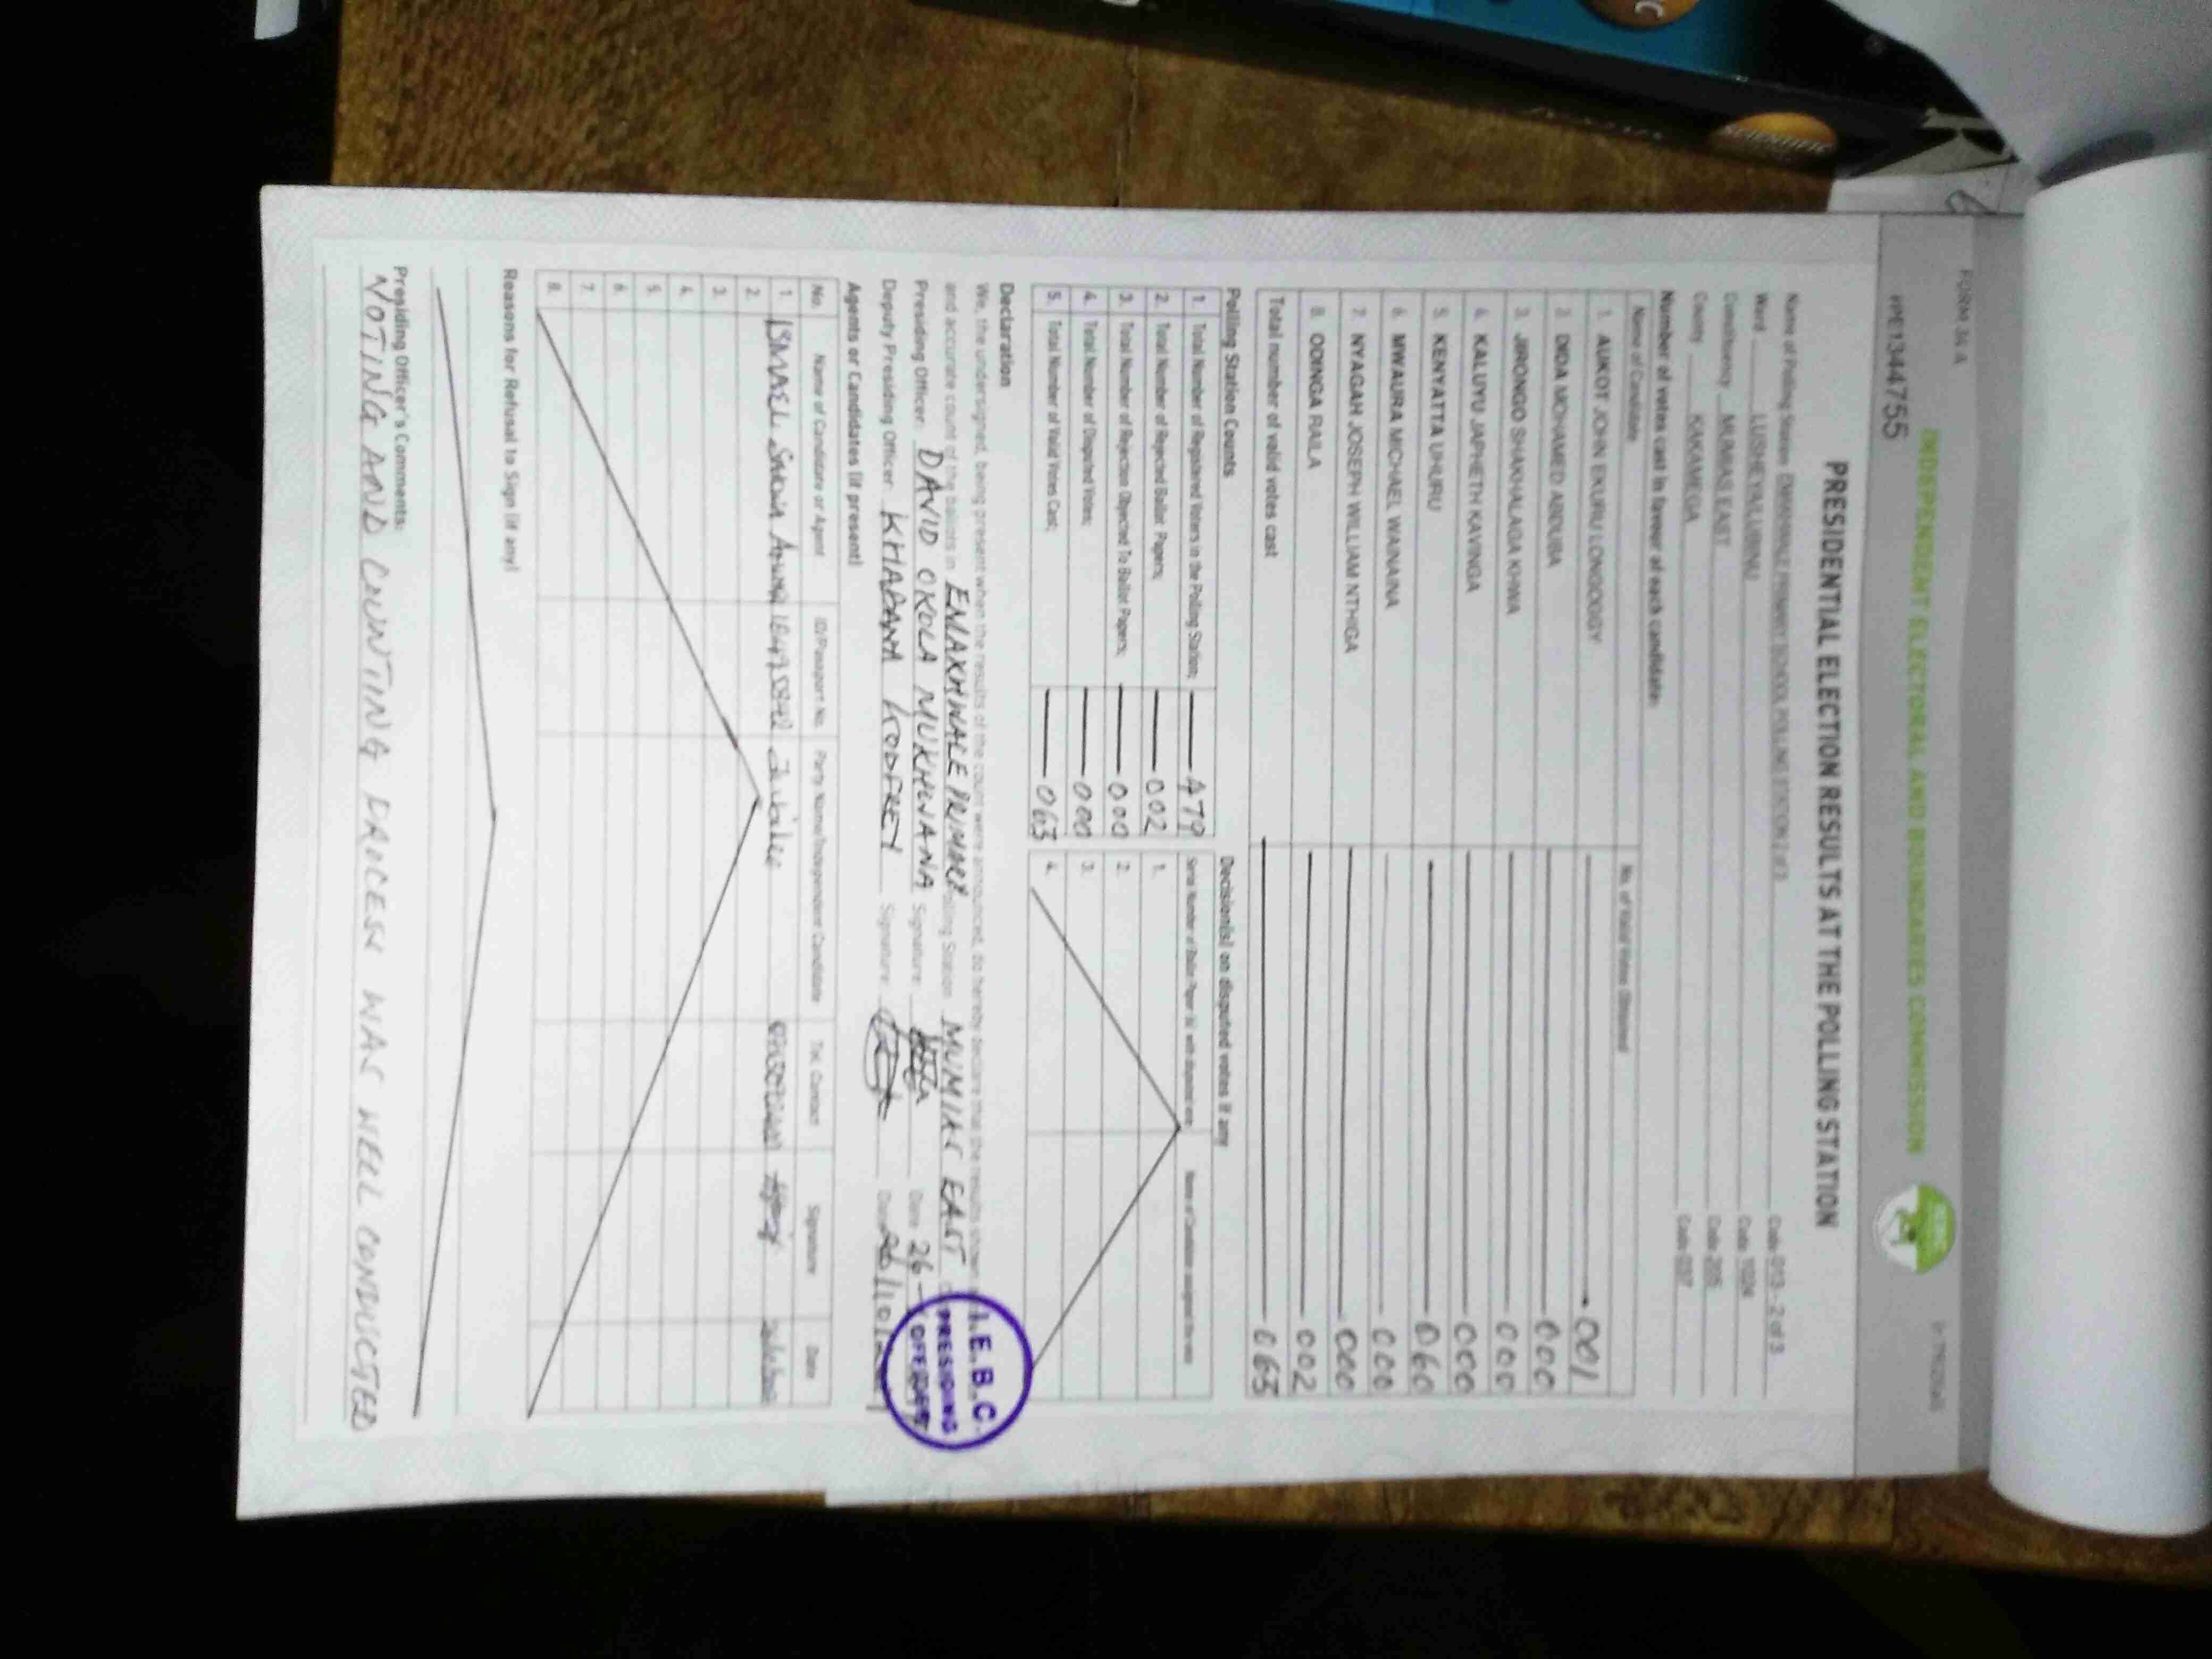 FORM 34 A
INDEPENDENT ELECTORAL AND BOUNDARIES COMMISSION
IEBC
PRESIDENTIAL ELECTION RESULTS AT THE POLLING STATION
Name of Polling Station EMAKHWALE PRIMARY SCHOOL POLLING STATION 2 of 3 Code 013 - 2 of 3
Ward LUSHEYA/LUBINU Code 1024
Constituency MUMIAS EAST Code 205
County KAKAMEGA Code 037
Number of votes cast in favour of each candidate:
Name of Candidate No. of Valid Votes Obtained
1. AUKOT JOHN EKURU LONGOGGY 001
2. DIDA MOHAMED ABDUBA 000
3. JIRONGO SHAKHALAGA KHWA 000
4. KALUYU JAPHETH KAVINGA 000
5. KENYATTA UHURU 060
6. MWAURA MICHAEL WAINAINA 000
7. NYAGAH JOSEPH WILLIAM NTHIGA 000
8. ODINGA RAILA 002
Total number of valid votes cast 063
Polling Station Counts
1. Total Number of Registered Voters in the Polling Station; 479
2. Total Number of Rejected Ballot Papers; 002
3. Total Number of Rejection Objected To Ballot Papers; 000
4. Total Number of Disputed Votes; 000
5. Total Number of Valid Votes Cast; 063
Decision(s) on disputed votes if any
1.
2.
3.
4.
Declaration
We, the undersigned, being present when the results of the count were announced, do hereby declare that the results shown
and accurate count of the ballots in EMAKHWALE PRIMARY Polling Station MUMIAS EAST
Presiding Officer: DAVID OKOLA MUKHWANA Signature: Date 26
Deputy Presiding Officer: KHABAYA KODFREY Signature: Date 26/10/
I.E.B.C.
PRESIDING
OFFICER
Agents or Candidates (if present)
No. Name of Candidate or Agent ID/Passport No. Party Name/Independent Candidate Tel. Contact Signature Date
1 ISMAEL Jubilee
2.
3.
4.
5.
6.
7.
8.
Reasons for Refusal to Sign (if any)
Presiding Officer's Comments:
NOTING AND COUNTING PROCESS WAS WELL CONDUCTED